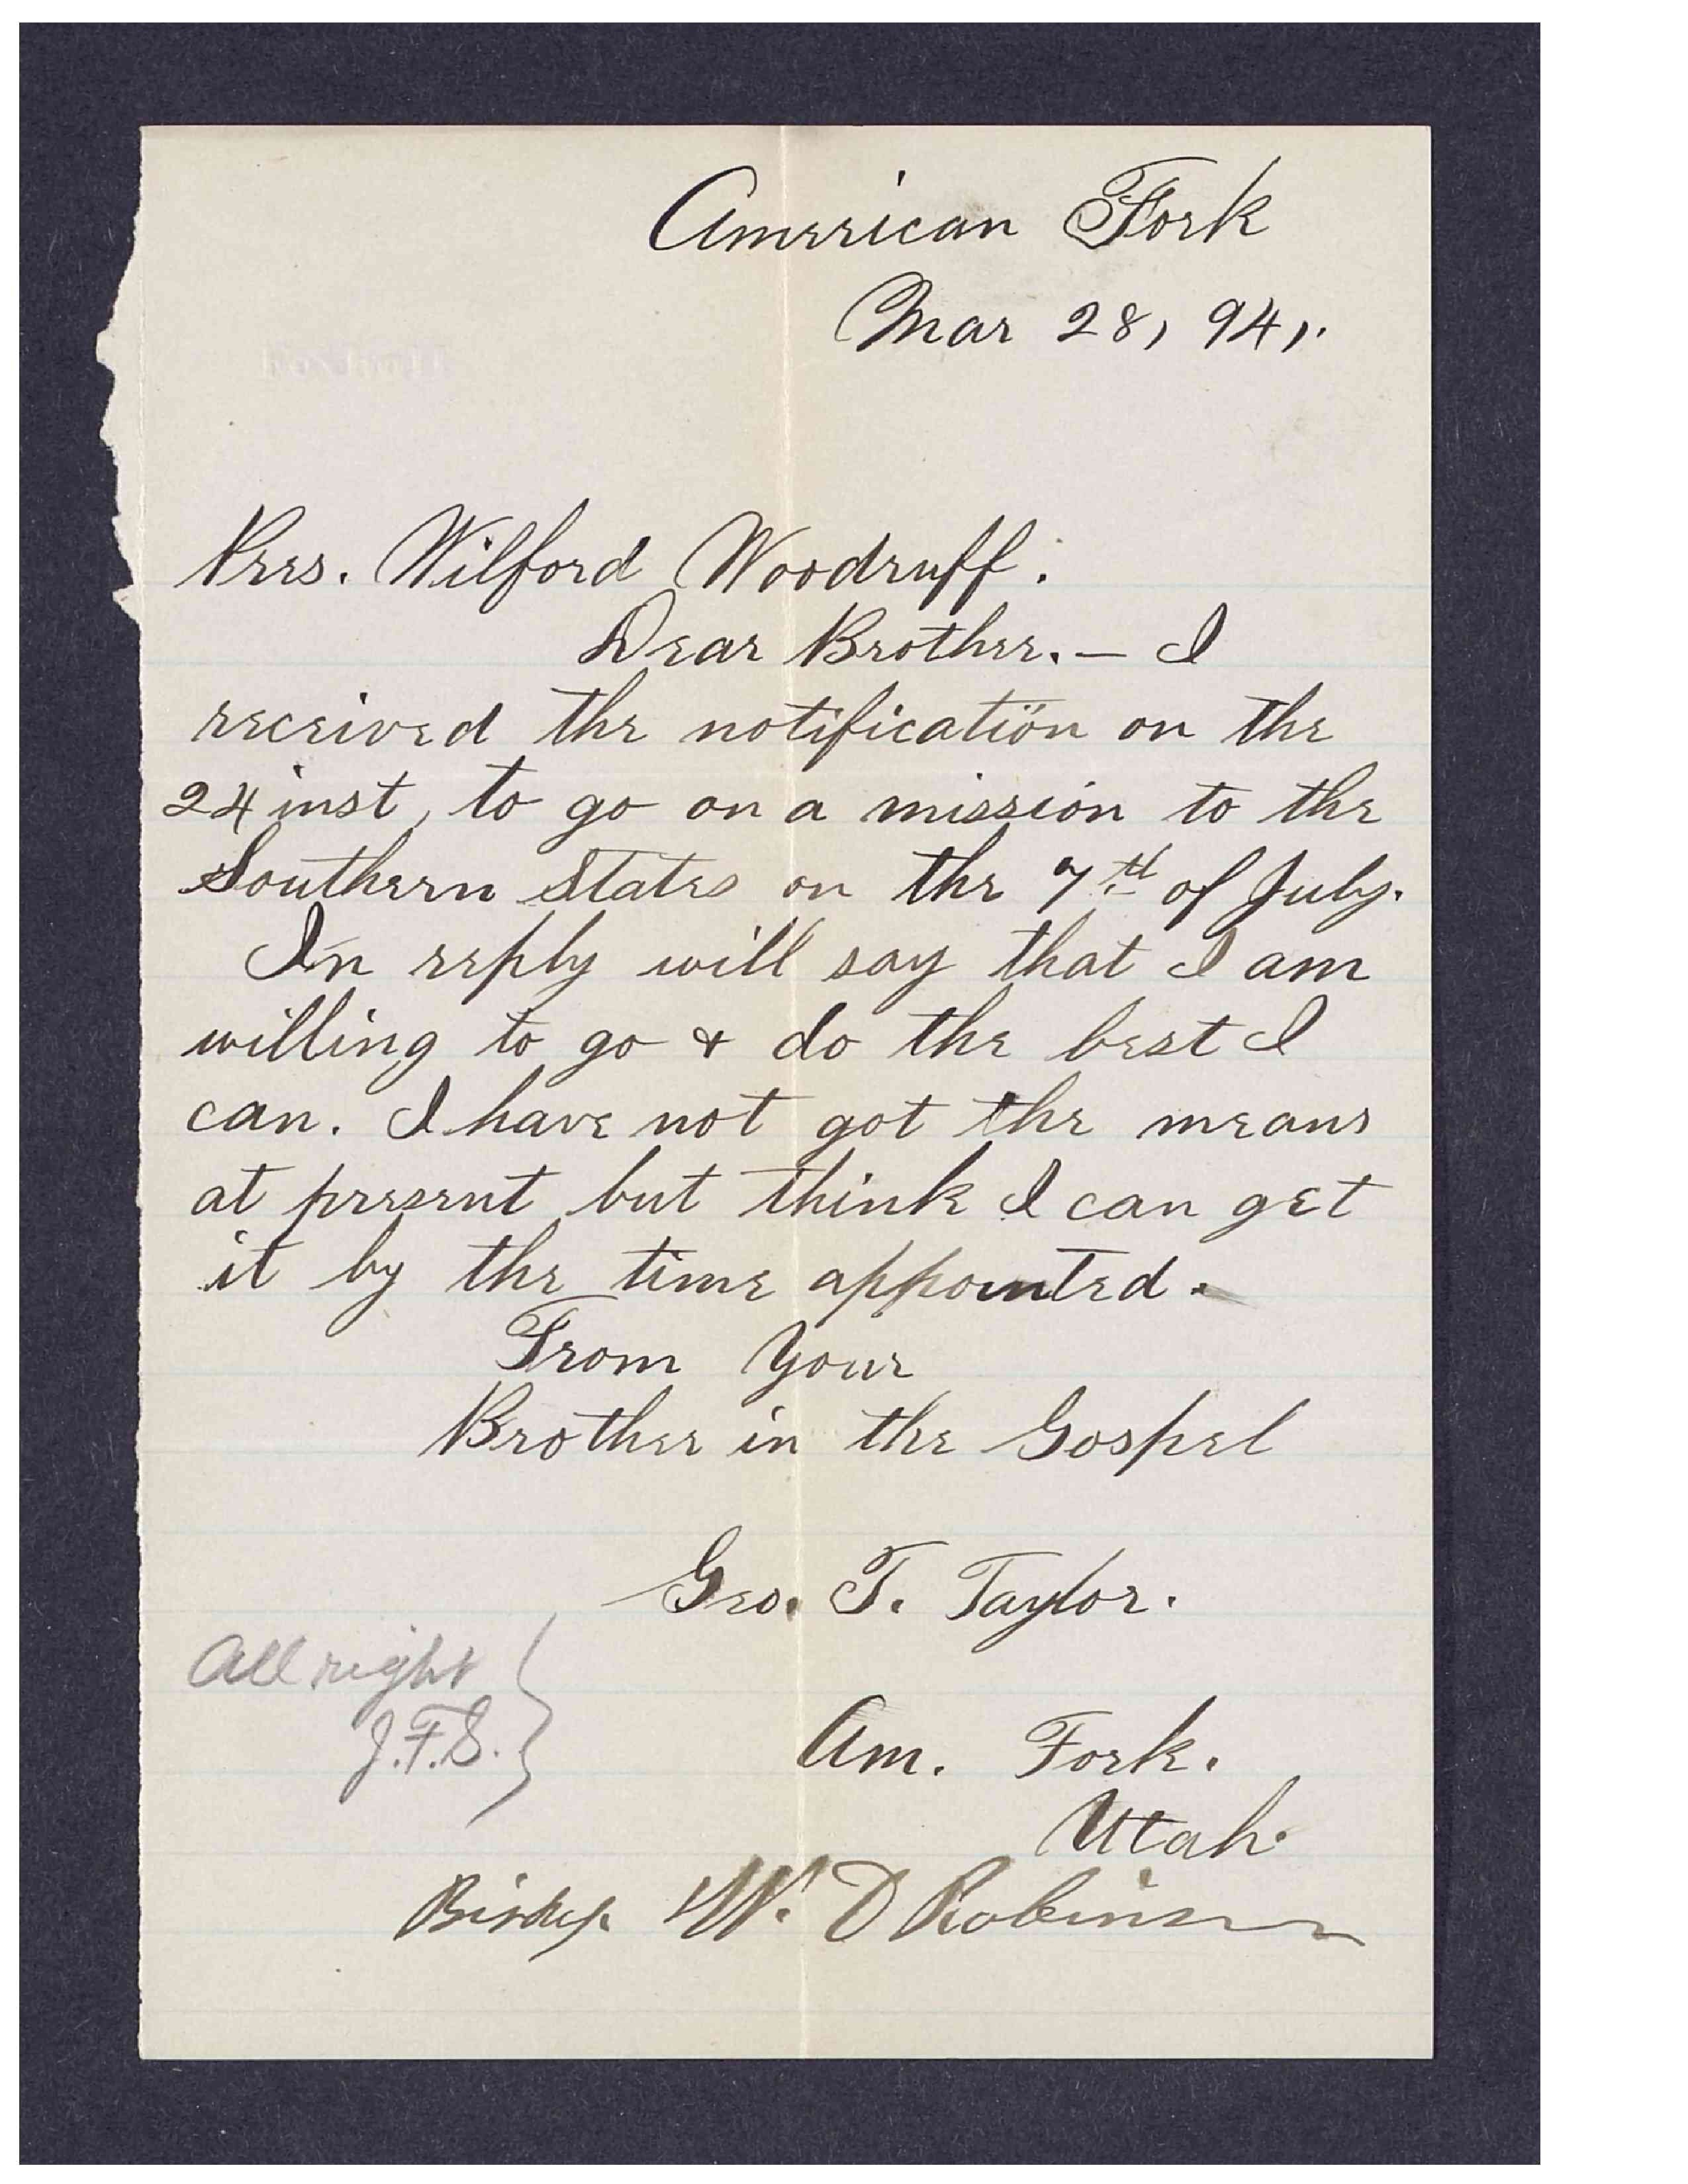 American Fork
Mar 28, 94,.
Pres. Wilford Woodruff.
Dear Brother. — I
received the notification on the
24 inst, to go on a mission to the
Southern States on the 7th of July.
In reply will say that I am
willing to go & do the best I
can. I have not got the means
at present but think I can get
it by the time appointed.
From Your
Brother in the Gospel
Geo. T. Taylor.
All right
J.F.S.
Am. Fork.
Utah.
Bishop W. D Robinson